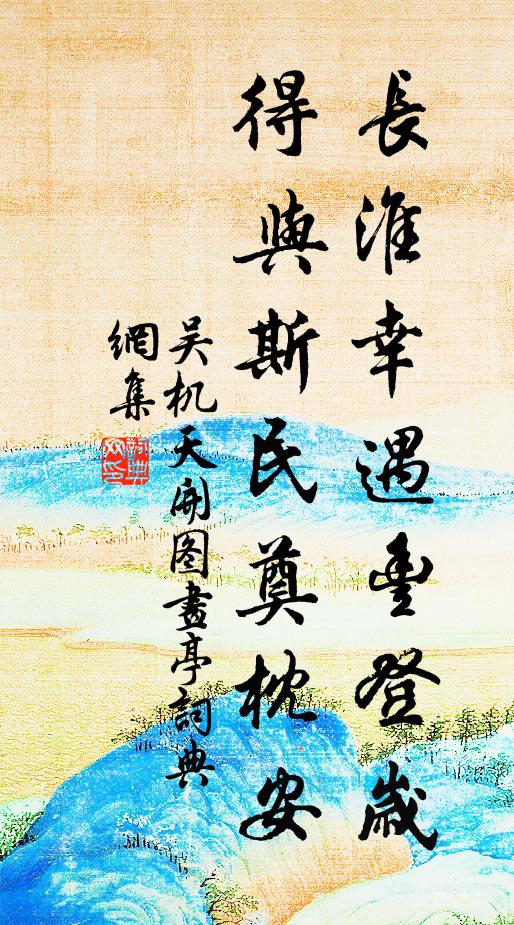 長淮幸遇豐登歲
得與斯民奠枕安
吴机天開图畫亭詞典
網集